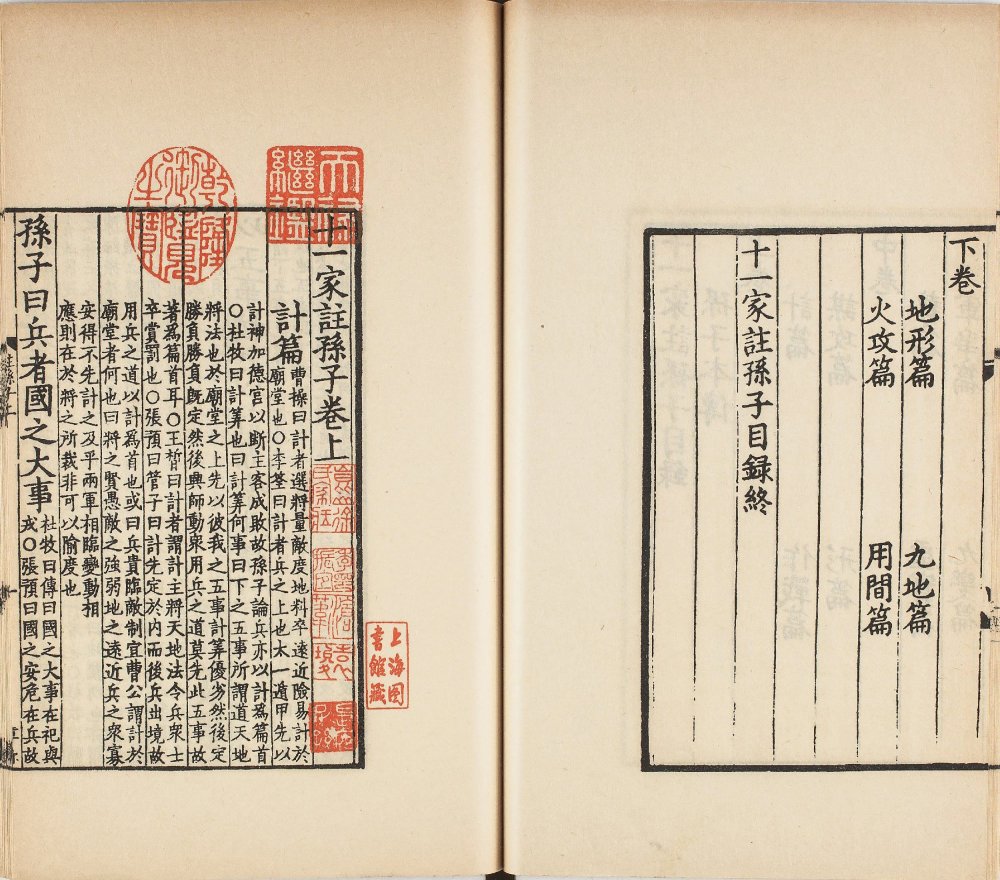 下卷
地形篇 九地篇
火攻篇 用間篇
十一家註孫子目録終
天祿繼鑑
乾隆御覽之寶
十一家註孫子卷上
計篇 曹操曰計者選將量敵度地料卒遠近險易計於
廟堂也○李筌曰計者兵之上也太一遁甲先以
計神加德宮以斷主客成敗故孫子論兵亦以計爲篇首
○杜牧曰計筭也曰計筭何事曰下之五事所謂道天地
將法也於廟堂之上先以彼我之五事計筭優劣然後定
勝負勝負旣定然後興師動衆用兵之道莫先此五事故
著爲篇首耳○王晳曰計者謂計主將天地法令兵衆士
卒賞罰也○張預曰管子曰計先定於内而後兵出境故
用兵之道以計爲首也或曰兵貴臨敵制宜曹公謂計於
廟堂者何也曰將之賢愚敵之強弱地之遠近兵之衆寡
安得不先計之及乎兩軍相臨變動相
應則在於將之所裁非可以隃度也
孫子曰兵者國之大事 杜牧曰傳曰國之大事在祀與
戎○張預曰國之安危在兵故
上海圖書館藏